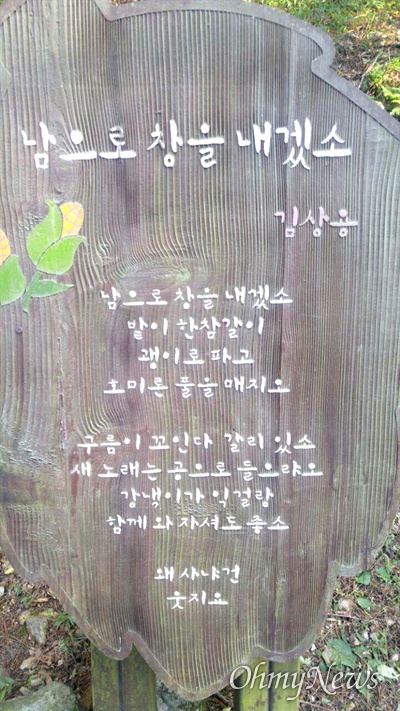 남으로 창을 내겠소
김상용
남으로 창을 내겠소
밭이 한참갈이
괭이로 파고
호미론 풀을 매지요
구름이 꼬인다 갈리 있소
새 노래는 공으로 들으랴오
강냉이가 익걸랑
함께 와 자셔도 좋소
왜 사냐건
웃지요
OhmyNews